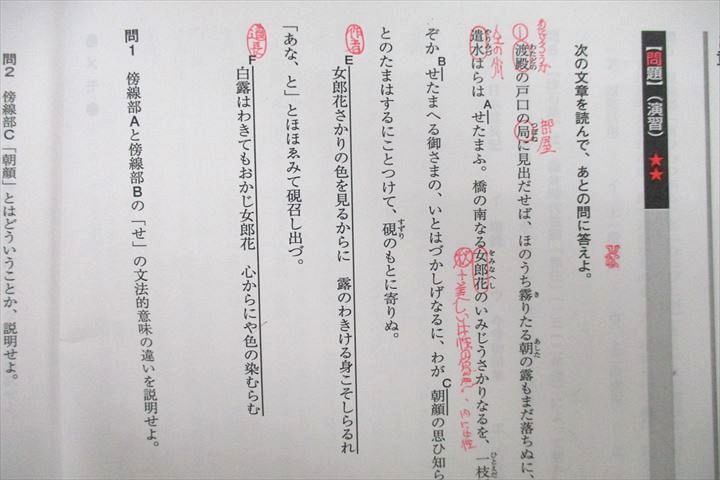 【問題】(演習) ★★
次の文章を読んで、あとの問に答えよ。
渡殿の戸口の局に見出だせば、ほのうち霧りたる朝の露もまだ落ちぬに、
わたどの
つぼね
き
あした
部屋
遣水はらはAせたまふ。橋の南なる女郎花のいみじうさかりなるを、一枝
やりみづ
をみなへし
ひとえだ
ぞか
Bせたまへる御さまの、いとはづかしげなるに、わがC朝顔の思ひ知ら
とのたまはするにことつけて、硯のもとに寄りぬ。
すずり
作者
E女郎花さかりの色を見るからに 露のわきける身こそしらるれ
「あな、と」とほほゑみて硯召し出づ。
道長
F白露はわきてもおかじ女郎花 心からにや色の染むらむ
問1 傍線部Aと傍線部Bの「せ」の文法的意味の違いを説明せよ。
問2 傍線部C「朝顔」とはどういうことか、説明せよ。